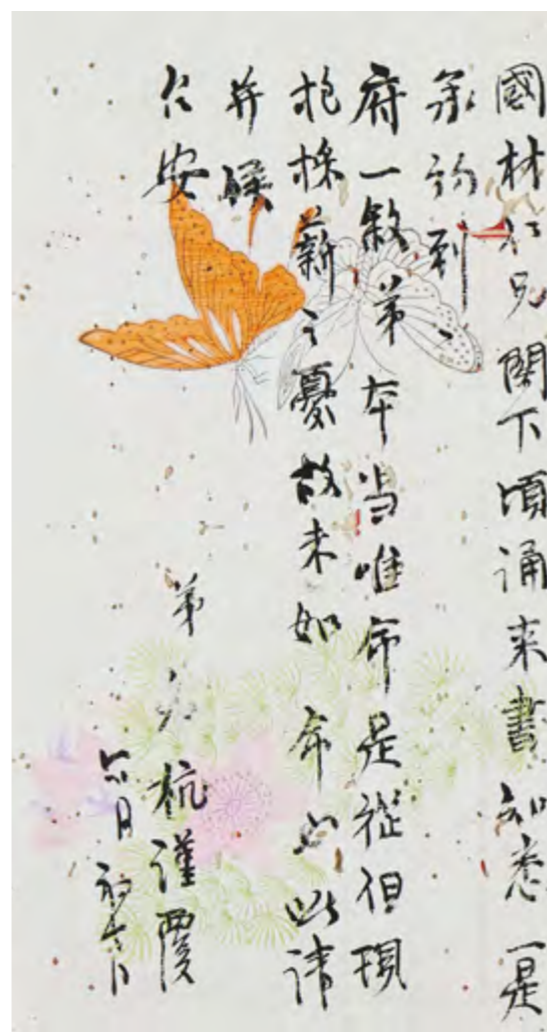 國材仁兄閣下頃誦来書知悉一是
承約到
府一敘弟本當唯命是從但現
抱採薪之憂故未如命也此請
并候
仁安
弟 杭謹覆
六月初六日